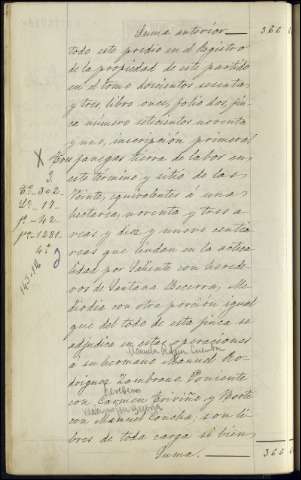 Suma anterior 366
todo este predio en el Registro
de la propiedad de este partido
en el tomo doscientos sesenta
y tres libro once, folio dos, fin-
ca número setecientos noventa
y uno, inscripción primera.
X Tres fanegas tierra de labor en
este término y sitio de las
Tº- 302
Veinte, equivalentes á una
Lº- 17-
hectárea, noventa y tres a-
fº- 42-
reas y diez y nueve centia-
fª- 1281
reas que lindan en la actua-
4ª
lidad por Saliente con herede-
ros de Santana Becerra, Me-
diodia con otra porción igual
que del todo de esta finca se
adjudica en estas operaciones
á su hermano Manuel Ro-
driguez Zambrano Poniente
con Carmen Triviño y Norte
con Manuel Concha, son li-
bres de toda carga el bien
Suma. 366